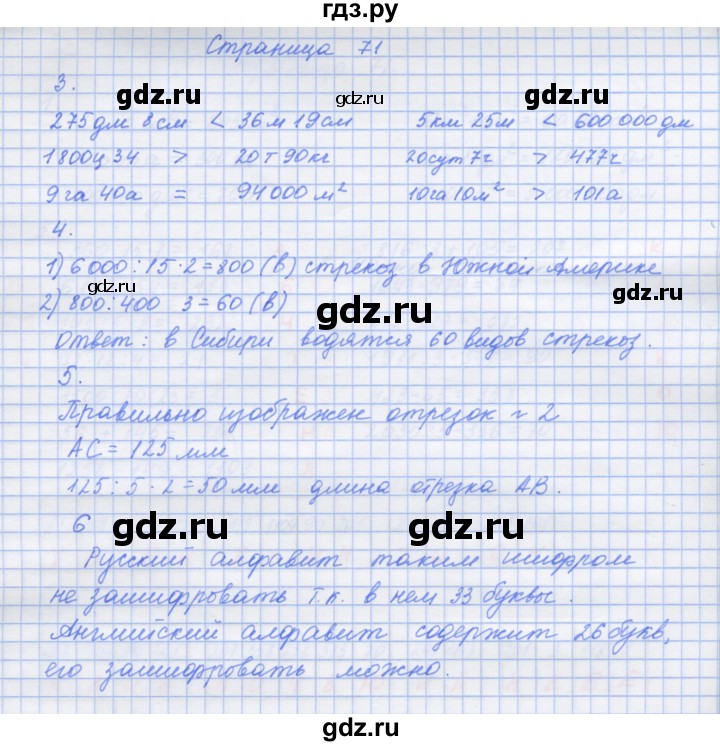 гдз.ру
Страница 71
gdz.ru gdz.ru
3.
275дм 8см < 36м 19см 5км 25м < 600 000дм
1800ц 34 > 20т 90кг 20сут 7ч > 477ч
9га 40а = 94000 м² 10га 10м² > 101а
4.
1) 6 000 : 15 · 2 = 800 (в) стрекоз в Южной Америке
gdz.ru gdz.ru
2) 800 : 400 3 = 60 (в)
gdz.ru
Ответ: в Сибири водятся 60 видов стрекоз.
5.
Правильно изображен отрезок н 2
АС = 125 мм
125 : 5 · 2 = 50 мм длина отрезка АВ.
6
gdz.ru gdz.ru
Русский алфавит таким шифром
не зашифровать т.к. в нем 33 буквы.
Английский алфавит содержит 26 букв,
его зашифровать можно.
gdz.ru